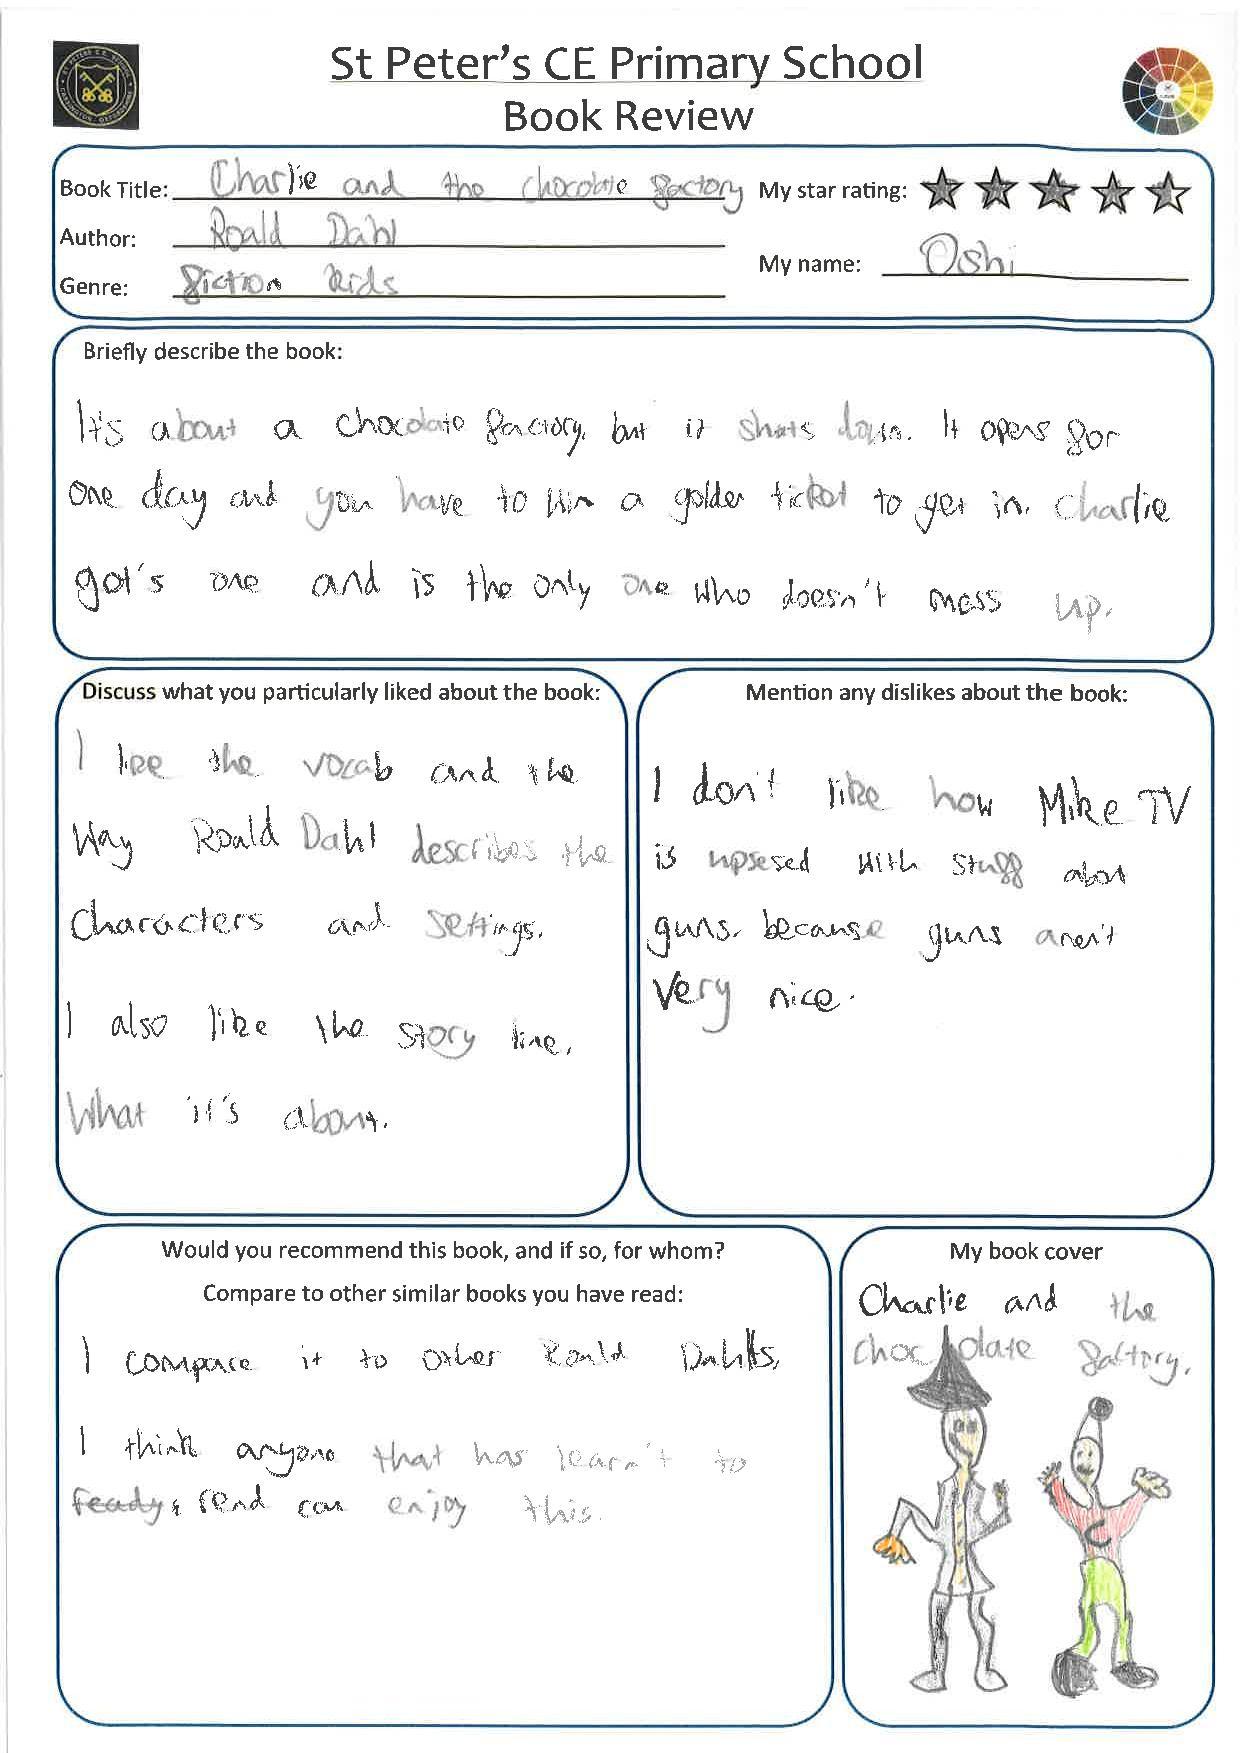 St Peter's CE Primary School
Book Review
Book Title: Charlie and the chocolate factory My star rating:
Author: Roald Dahl
My name: Oshi
Genre: fiction kids
Briefly describe the book:
It's about a chocolate factory, but it shuts down. It opens for
one day and you have to win a golden ticket to get in. Charlie
got's one and is the only one who doesn't mess up.
Discuss what you particularly liked about the book:
I like the vocab and the
way Roald Dahl describes the
characters and settings.
I also like the story line.
What it's about.
Mention any dislikes about the book:
I don't like how Mike TV
is upsesed with stuff abot
guns. because guns aren't
very nice.
Would you recommend this book, and if so, for whom?
Compare to other similar books you have read:
I compare it to other Roald Dahls.
I think anyone that has learn't to
read can enjoy this.
My book cover
Charlie and the
chocolate factory.